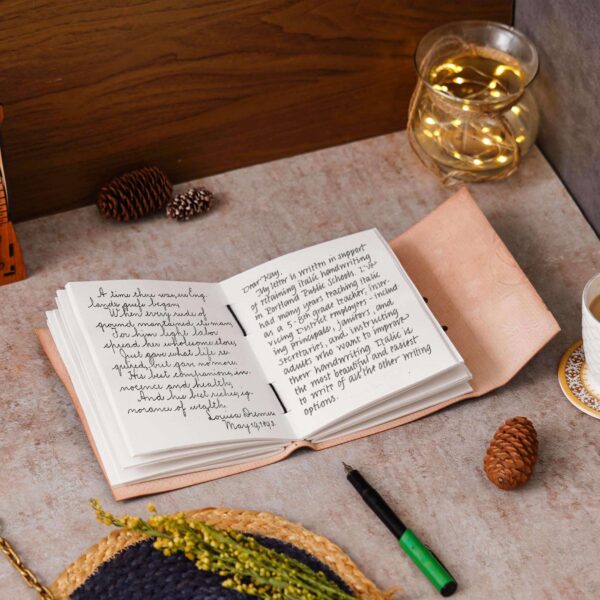 A time there was, ere Eng-
land's griefs began,
When every rood of
ground maintained its man;
For him light labor
spread her wholesome store,
Just gave what life re-
quired, but gave no more.
His best companions, in-
nocence and health;
And his best riches, ig-
norance of wealth.
Louisa
May 19, 1893.
Dear Kay,
My letter is written in support
of retaining italic handwriting
in Portland Public Schools. I've
had many years teaching italic
as a 5-8th grade teacher, inser-
vicing District employees - includ
ing principals, janitors, and
secretaries, and instructing
adults who want to improve
their handwriting. Italic is
the most beautiful and easiest
to write of all the other writing
options.